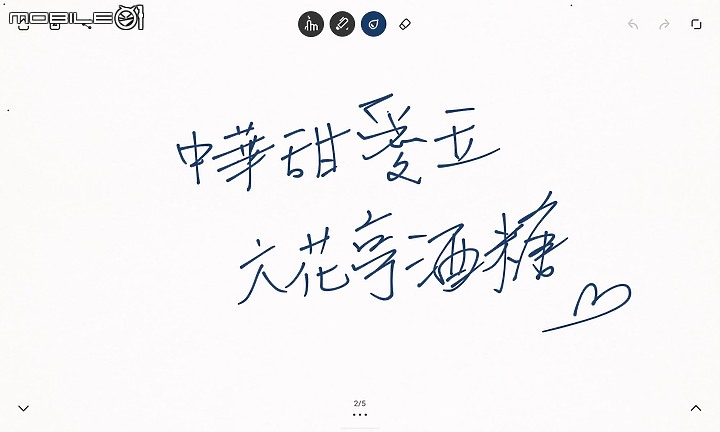 MOBILE01
中華甜愛玉
六花亭酒糖
2/5